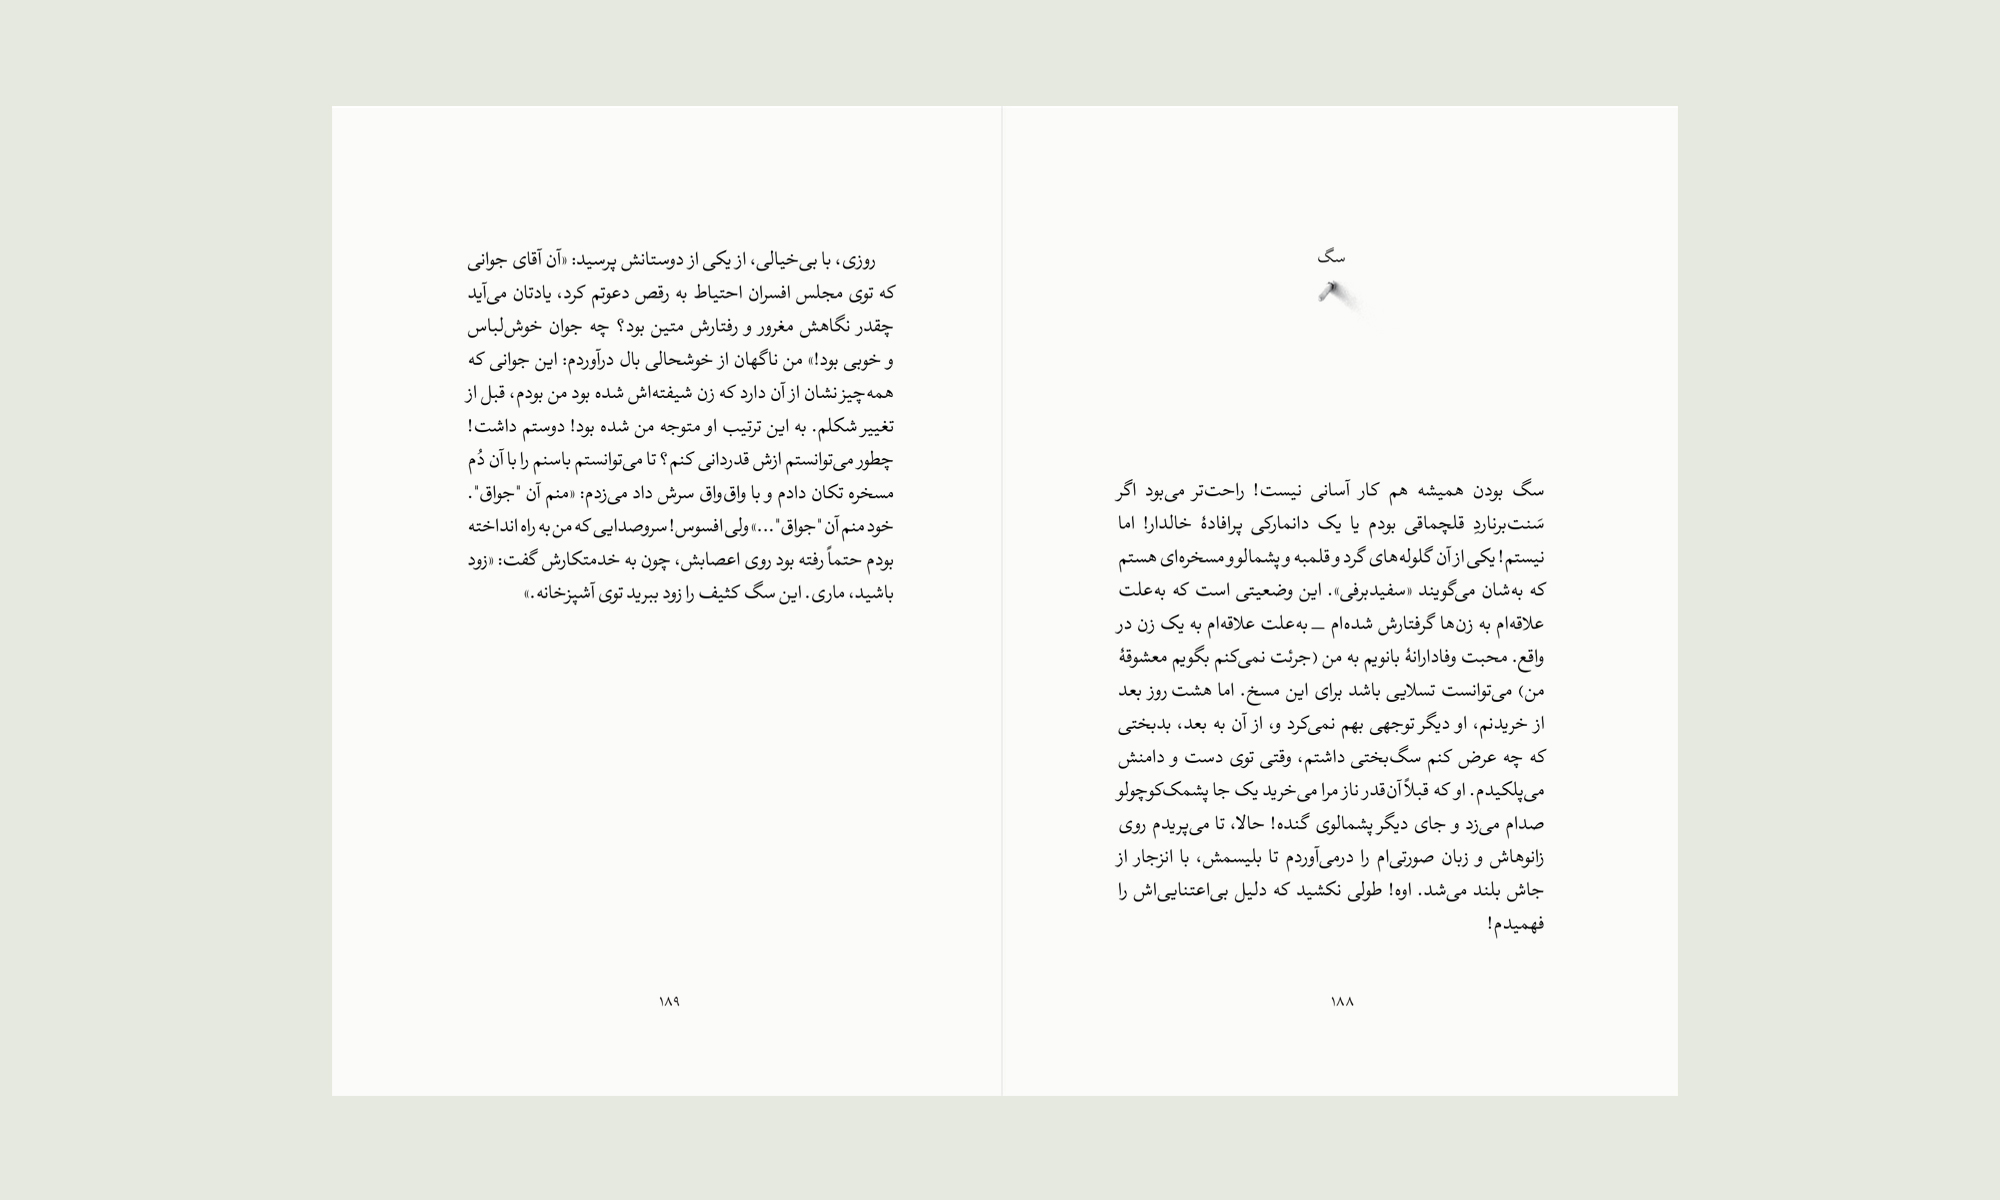 سگ
سگ بودن همیشه هم کار آسانی نیست! راحت‌تر می‌بود اگر
سَنت‌برناردِ قلچماقی بودم یا یک دانمارکی پرافادهٔ خالدار! اما
نیستم! یکی از آن گلوله‌های گرد و قلمبه و پشمالو و مسخره‌ای هستم
که به‌شان می‌گویند «سفیدبرفی». این وضعیتی است که به‌علت
علاقه‌ام به زن‌ها گرفتارش شده‌ام ــ به‌علت علاقه‌ام به یک زن در
واقع. محبت وفادارانهٔ بانویم به من (جرئت نمی‌کنم بگویم معشوقهٔ
من) می‌توانست تسلایی باشد برای این مسخ. اما هشت روز بعد
از خریدنم، او دیگر توجهی بهم نمی‌کرد و، از آن به بعد، بدبختی
که چه عرض کنم سگ‌بختی داشتم، وقتی توی دست و دامنش
می‌پلکیدم. او که قبلاً آن‌قدر ناز مرا می‌خرید یک جا پشمک‌کوچولو
صدام می‌زد و جای دیگر پشمالوی گنده! حالا، تا می‌پریدم روی
زانوهاش و زبان صورتی‌ام را درمی‌آوردم تا بلیسمش، با انزجار از
جاش بلند می‌شد. اوه! طولی نکشید که دلیل بی‌اعتنایی‌اش را
فهمیدم!
۱۸۸
روزی، با بی‌خیالی، از یکی از دوستانش پرسید: «آن آقای جوانی
که توی مجلس افسران احتیاط به رقص دعوتم کرد، یادتان می‌آید
چقدر نگاهش مغرور و رفتارش متین بود؟ چه جوان خوش‌لباس
و خوبی بود!» من ناگهان از خوشحالی بال درآوردم: این جوانی که
همه‌چیز نشان از آن دارد که زن شیفته‌اش شده بود من بودم، قبل از
تغییر شکلم. به این ترتیب او متوجه من شده بود! دوستم داشت!
چطور می‌توانستم ازش قدردانی کنم؟ تا می‌توانستم باسنم را با آن دُم
مسخره تکان دادم و با واق‌واق سرش داد می‌زدم: «منم آن "جواق".
خود منم آن "جواق"...» ولی افسوس! سروصدایی که من به راه انداخته
بودم حتماً رفته بود روی اعصابش، چون به خدمتکارش گفت: «زود
باشید، ماری. این سگ کثیف را زود ببرید توی آشپزخانه.»
۱۸۹